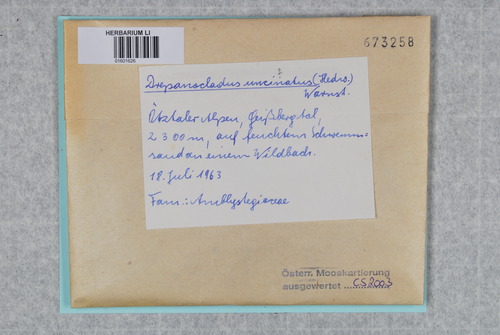 HERBARIUM LI
01601626
673258
Drepanocladus uncinatus (Hedw.)
Warnst.
Ötztaler Alpen, Gaißbergtal,
2300m, auf feuchtem Schwemm-
sand an einem Wildbach.
18. Juli 1963
Fam.: Amblystegiaceae
Österr. Mooskartierung
ausgewertet CS2003